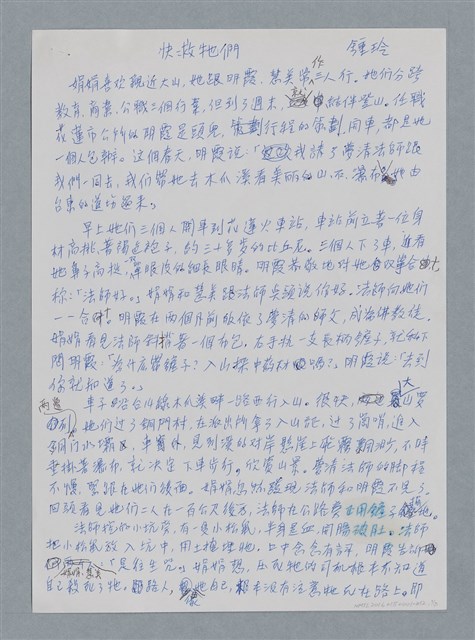 快救牠們 鍾玲
娟娟喜欢親近大山,她跟明霞、慧美常作三人行。他们分踞
教育、商業、公職三個行業,但到了週末,結伴登山。任職
花蓮市公所的明霞是頭兒,策劃行程的策劃、開車,都是她
一個人包辦。這個春天,明霞說:「我請了蒙清法師跟
我們一同去,我们帶她去木瓜溪看美丽的山石、瀑布,她由
台東的道場過來。」
早上她们三個人開車到花蓮火車站,車站前立着一位身
材高挑、著褐色袍子,約三十多岁的比丘尼。三個人下了車,看
她鼻子高挺、單眼皮的細長眼睛。明霞恭敬地对她合十
称:「法師好。」娟娟和慧美跟法師点頭說你好。法師向她们
一一合十。明霞在兩個月前皈依了蒙清做師父,成為佛教徒。
娟娟看見法師斜揹著一個布包,右手抗一支長柄鏟子,
問明霞:「為什庅帶鏟子?入山採中药材嗎?」明霞說:「去到
你就知道了。」
車子踣台14線木瓜溪畔一路西行入山。很快,大山要
兩邊
到。她们过了銅門村,在派出所拿了入山証,过了崗哨,進入
銅门水壩,車窗外,見到溪的对岸懸崖上飛霧翻湧,不時
垂掛着瀑布,就決定下車步行,欣賞山景。蒙清法師的脚程
不慢,緊跟在她们後面。娟娟忽然發現法師和明霞不見了。
回頭看見她们二人在一百公尺後方,法師在公路旁用鏟子挖地。
法師挖的小坑旁,有一隻小松鼠,半身是血,開膛破肚。法師
把小松鼠放入坑中,用土掩埋牠。口中念念有詞,明霞告訴
娟娟、慧美
「是往生咒。」娟娟想,压死牠的司机根本不知道
自己殺死了牠。路人,像她自己,根本沒有注意牠死在路上。即